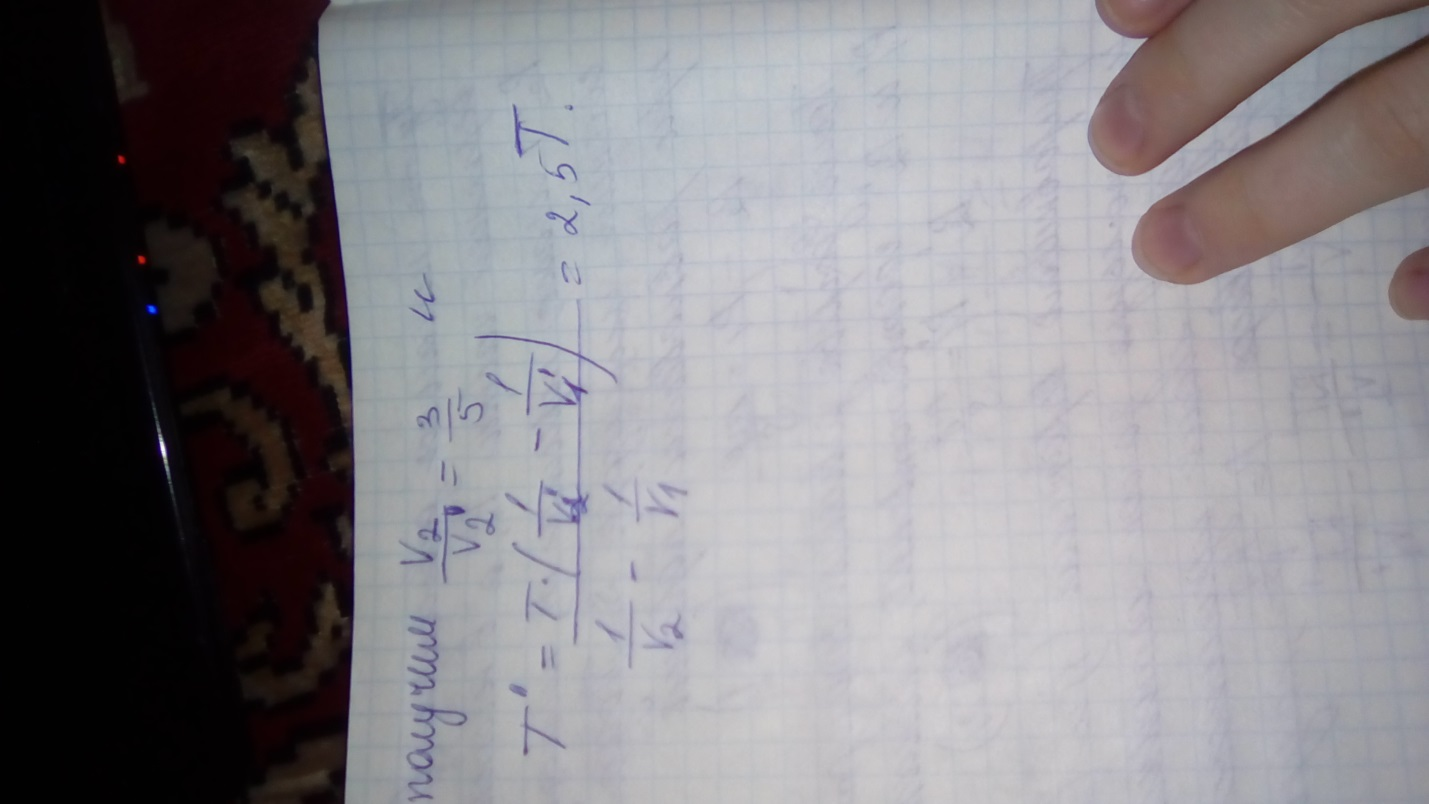 получим V₂/V₂' = 3/5 и
T' = T·(1/V₂' - 1/V₁')/(1/V₂ - 1/V₁) = 2,5T.